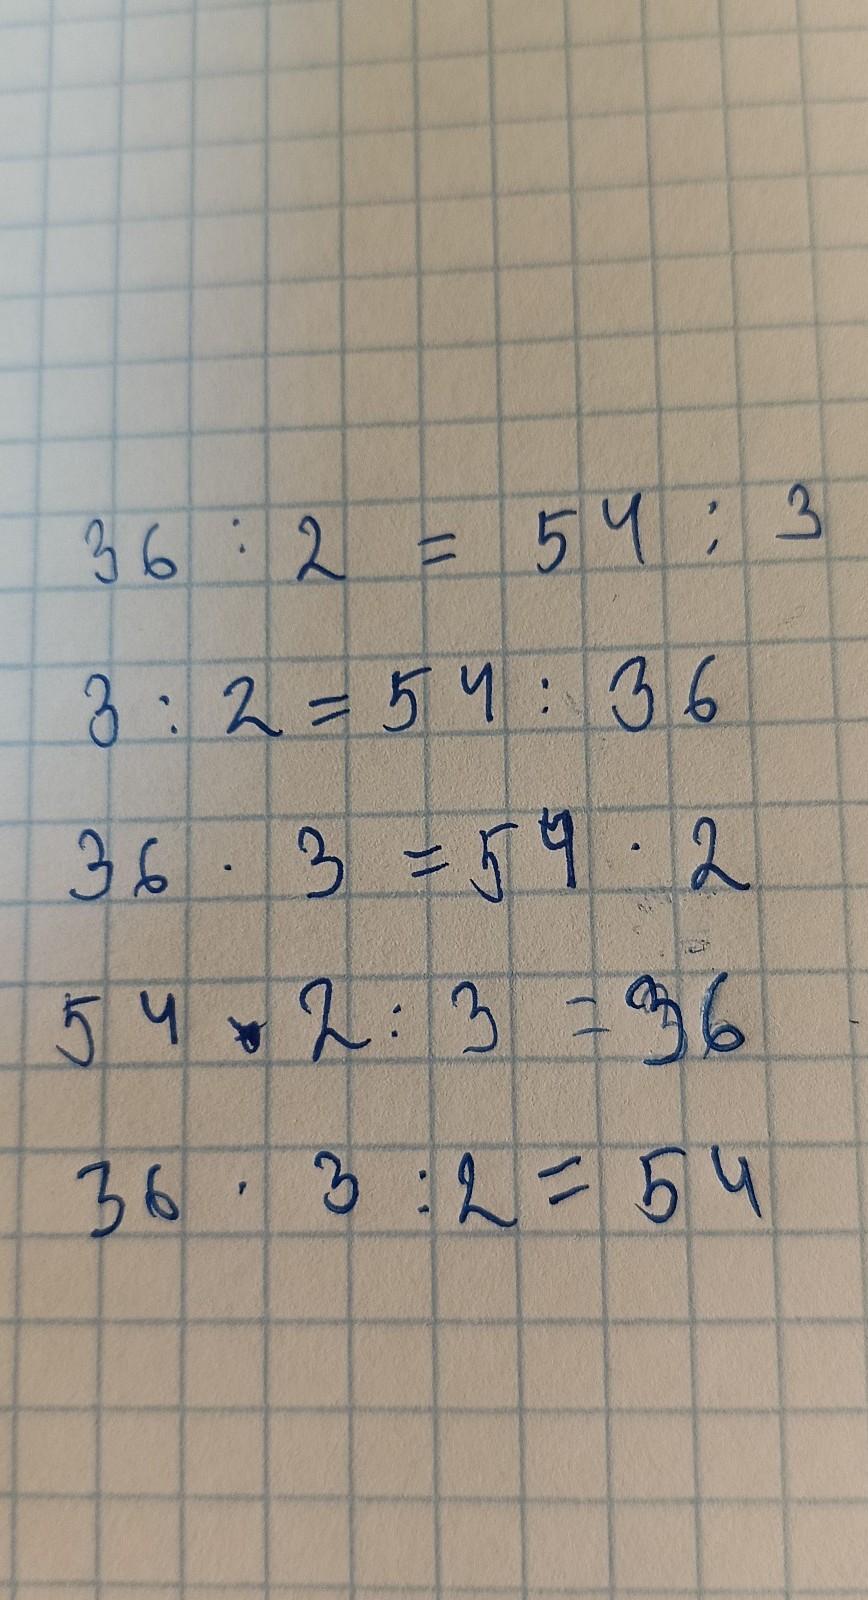 36 : 2 = 54 : 3
3 : 2 = 54 : 36
36 · 3 = 54 · 2
54 · 2 : 3 = 36
36 · 3 : 2 = 54